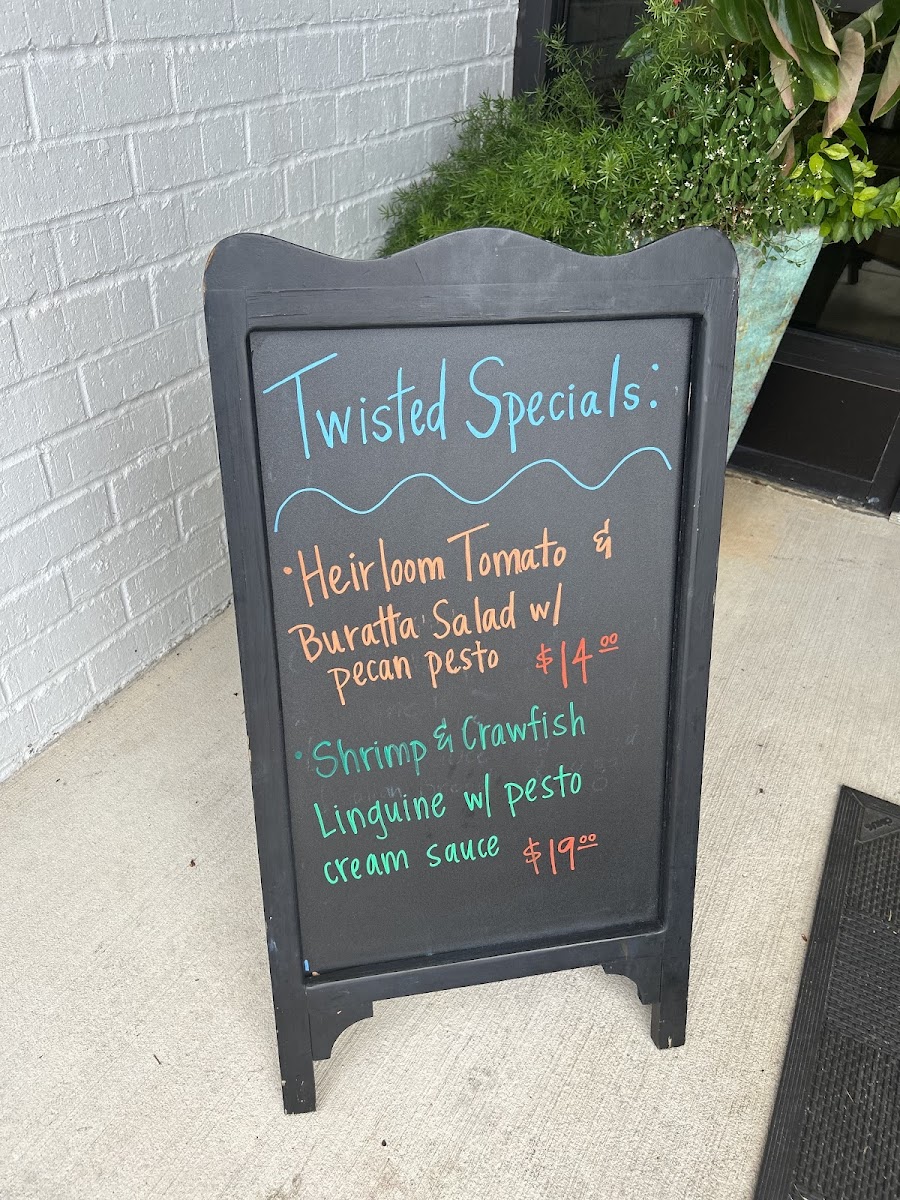 Twisted Specials:
• Heirloom Tomato &
Buratta Salad w/
pecan pesto $14.00
• Shrimp & Crawfish
Linguine w/ pesto
cream sauce $19.00